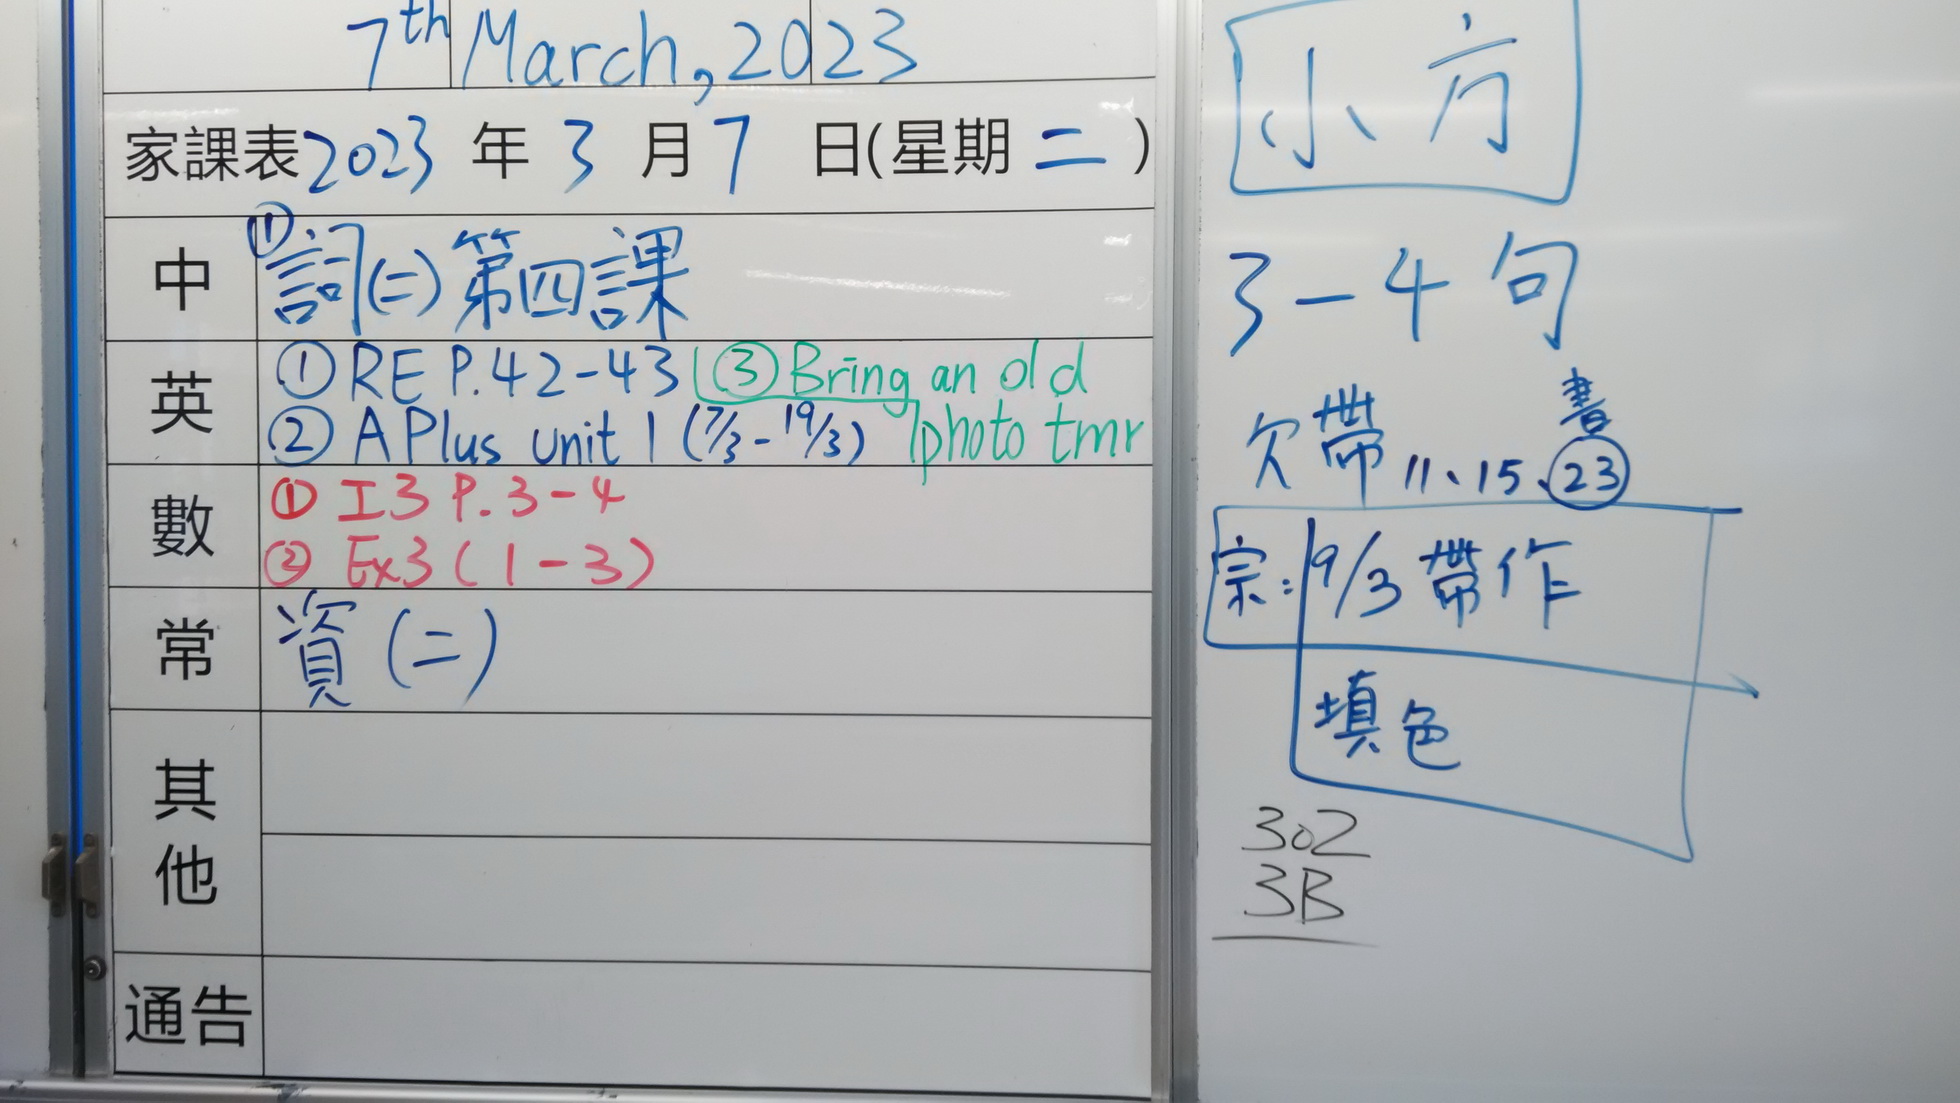 7th March, 2023
家課表 2023 年 3 月 7 日(星期 二)
中 ① 詞(二)第四課
英 ① RE P.42-43 ③ Bring an old photo tmr
② A Plus unit 1 (7/3-19/3)
數 ① I3 P.3-4
② Ex3 (1-3)
常 資(二)
其他
通告
小方
3-4句
書
欠帶 11、15、23
宗: 9/3 帶作
填色
302
3B